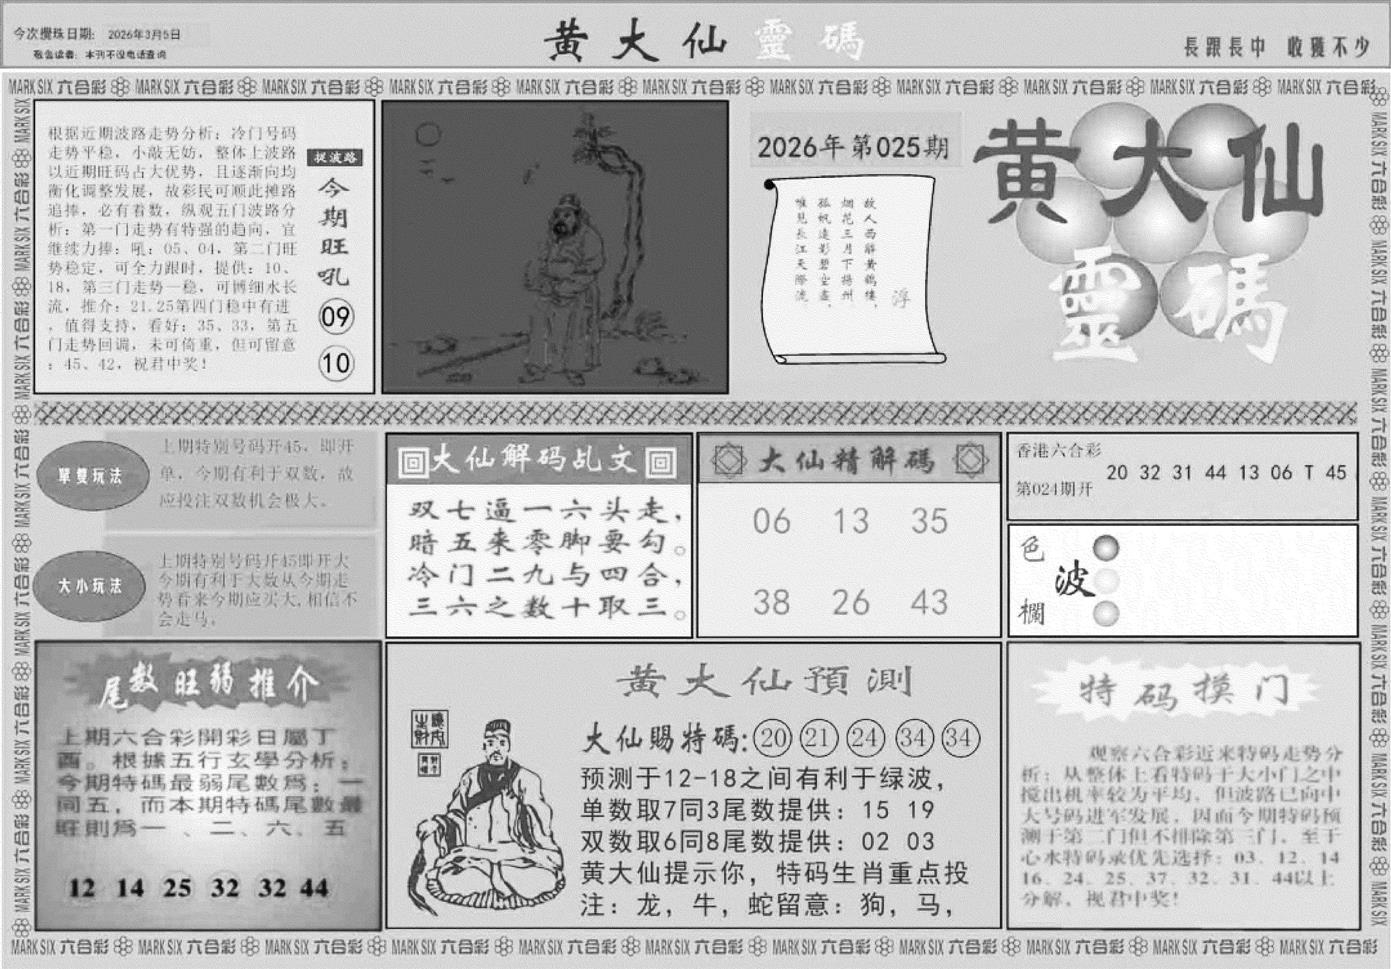 今次攪珠日期: 2026年3月5日
敬告读者: 本刊不设电话查询
黄大仙靈碼
長跟長中 收獲不少
MARK SIX 六合彩 MARK SIX 六合彩 MARK SIX 六合彩 MARK SIX 六合彩 MARK SIX 六合彩 MARK SIX 六合彩 MARK SIX 六合彩 MARK SIX 六合彩 MARK SIX 六合彩 MARK SIX 六合彩 MARK SIX 六合彩
根据近期波路走势分析: 冷门号码
走势平稳, 小敲无妨, 整体上波路
以近期旺码占大优势, 且逐渐向均
衡化调整发展, 故彩民可顺此摊路
追捧, 必有着数, 纵观五门波路分
析: 第一门走势有特强的趋向, 宜
继续力捧: 吼: 05、04, 第二门旺
势稳定, 可全力跟时, 提供: 10、
18, 第三门走势一稳, 可博细水长
流, 推介: 21.25第四门稳中有进
, 值得支持, 看好: 35、33, 第五
门走势回调, 未可倚重, 但可留意
: 45、42, 祝君中奖!
捉波路
今期旺吼
09
10
2026年第025期
故人西辭黃鶴樓,
烟花三月下揚州
孤帆遠影碧空盡,
唯見長江天際流
浮
黄大仙
靈碼
單雙玩法
上期特别号码开45, 即开
单, 今期有利于双数, 故
应投注双数机会极大。
大小玩法
上期特别号码开45即开大
今期有利于大数从今期走
势看来今期应买大,相信不
会走马。
大仙解码乩文
双七逼一六头走,
暗五来零脚要勾。
冷门二九与四合,
三六之数十取三。
大仙精解碼
06 13 35
38 26 43
香港六合彩
第024期开
20 32 31 44 13 06 T 45
色波欄
尾数旺弱推介
上期六合彩開彩日屬丁
酉。根據五行玄學分析;
今期特碼最弱尾數爲: 一
同五, 而本期特碼尾數最
旺則爲一 、二、六、五
12 14 25 32 32 44
黄大仙預測
大仙賜特碼: 20 21 24 34 34
预测于12-18之间有利于绿波,
单数取7同3尾数提供: 15 19
双数取6同8尾数提供: 02 03
黄大仙提示你, 特码生肖重点投
注: 龙, 牛, 蛇留意: 狗, 马,
特码摸门
观察六合彩近来特码走势分
析: 从整体上看特码于大小门之中
搅出机率较为平均, 但波路已向中
大号码进军发展, 因而今期特码预
测于第二门但不排除第三门, 至于
心水特码录优先选择: 03、12、14
16、24、25、37、32、31、44以上
分解, 祝君中奖!
MARK SIX 六合彩 MARK SIX 六合彩 MARK SIX 六合彩 MARK SIX 六合彩 MARK SIX 六合彩 MARK SIX 六合彩 MARK SIX 六合彩 MARK SIX 六合彩 MARK SIX 六合彩 MARK SIX 六合彩 MARK SIX 六合彩